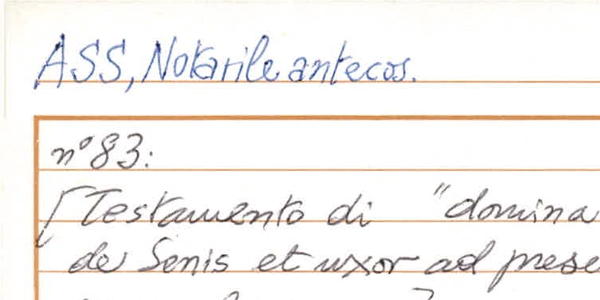 ASS, Notarile antecos.
n° 83:
[Testamento di "domina
de Senis et uxor ad prese